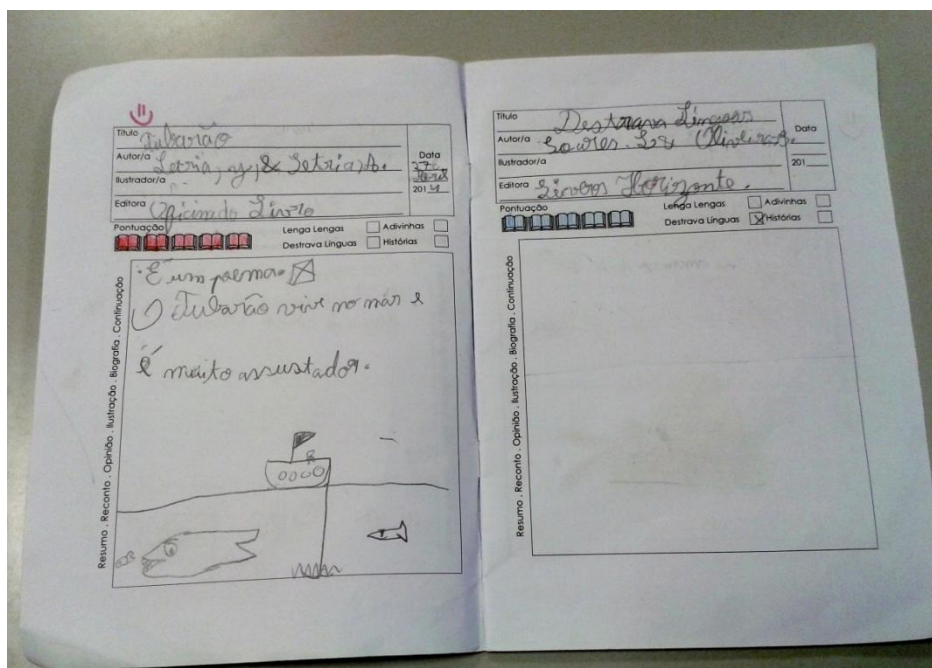 Título Tubarão
Autor/a Letria, J, & Letria, A.
Data
Ilustrador/a
2014
Editora Oficina do Livro
Pontuação
Lenga Lengas
Adivinhas
Destrava Línguas
Histórias
Resumo . Reconto . Opinião . Ilustração . Biografia . Continuação
É um poema.
O Tubarão vive no mar e
é muito assustador.
Título Destrava Línguas
Autor/a Soares. L & Oliveira B.
Data
Ilustrador/a
201
Editora Livros Horizonte.
Pontuação
Lenga Lengas
Adivinhas
Destrava Línguas
Histórias
Resumo . Reconto . Opinião . Ilustração . Biografia . Continuação